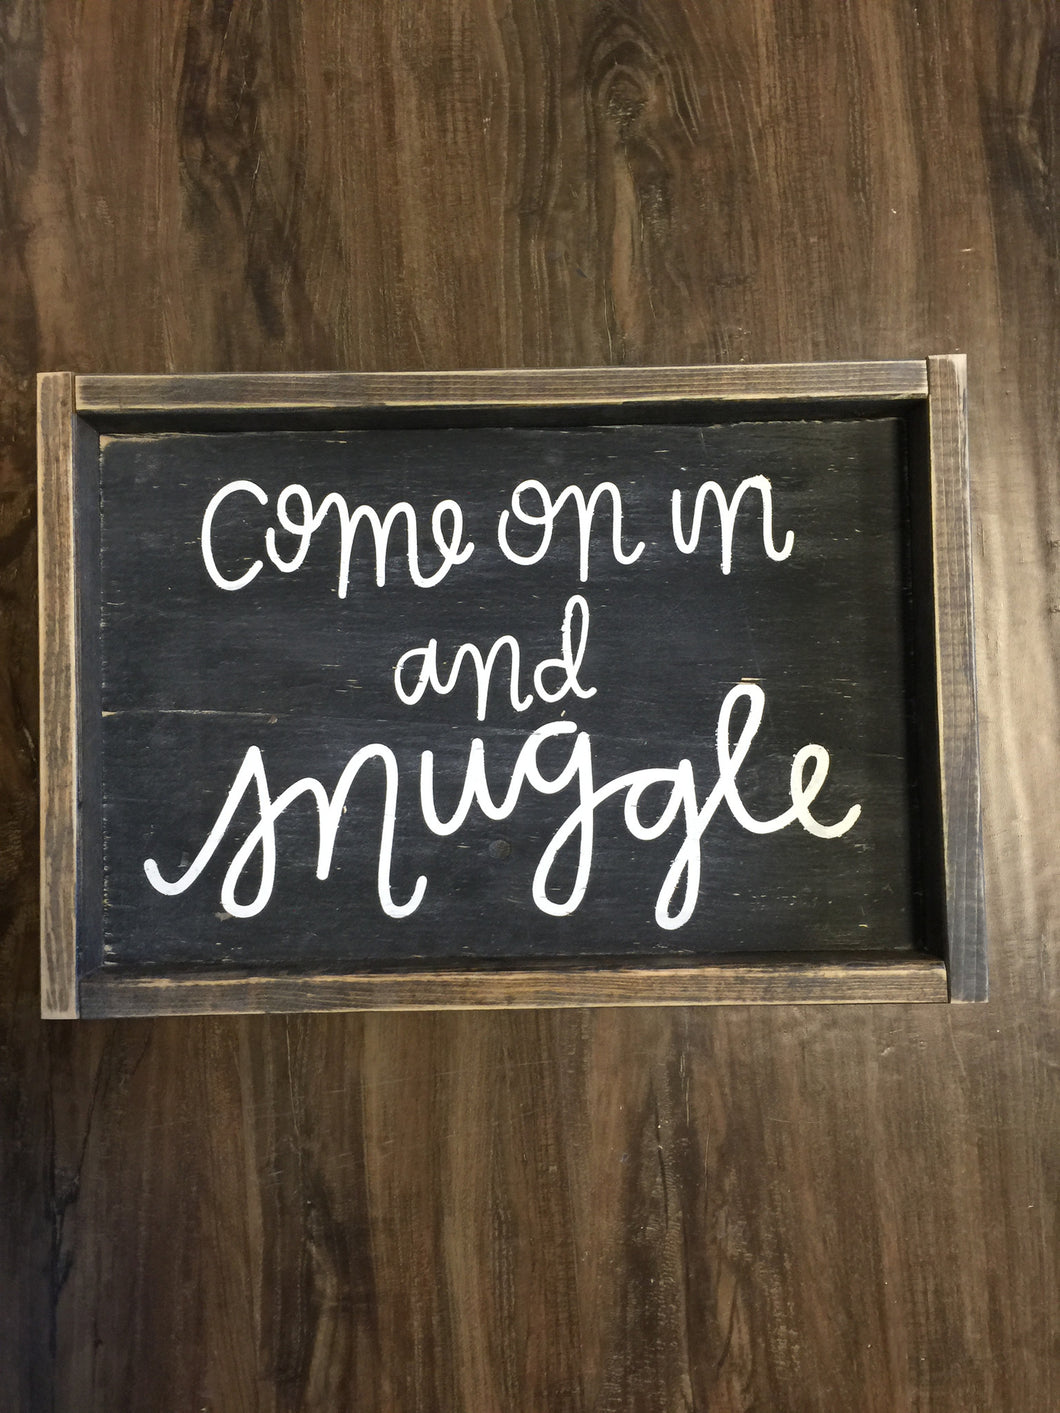 Come on in
and
snuggle